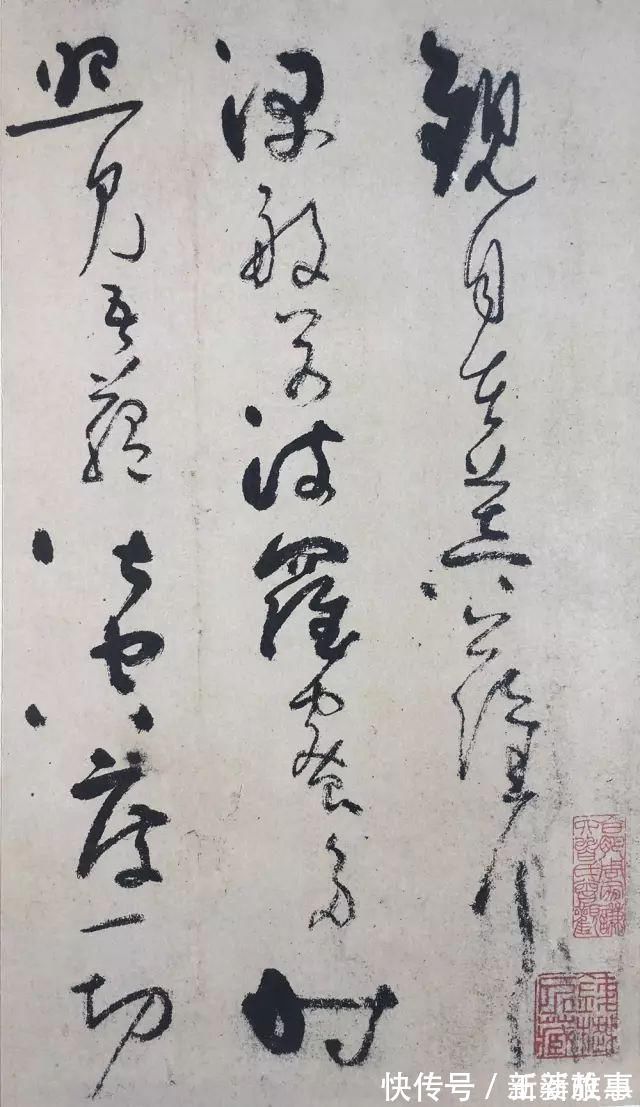 觀自在菩薩行
深般若波羅蜜多時
照見五蘊皆空度一切
快传号 /